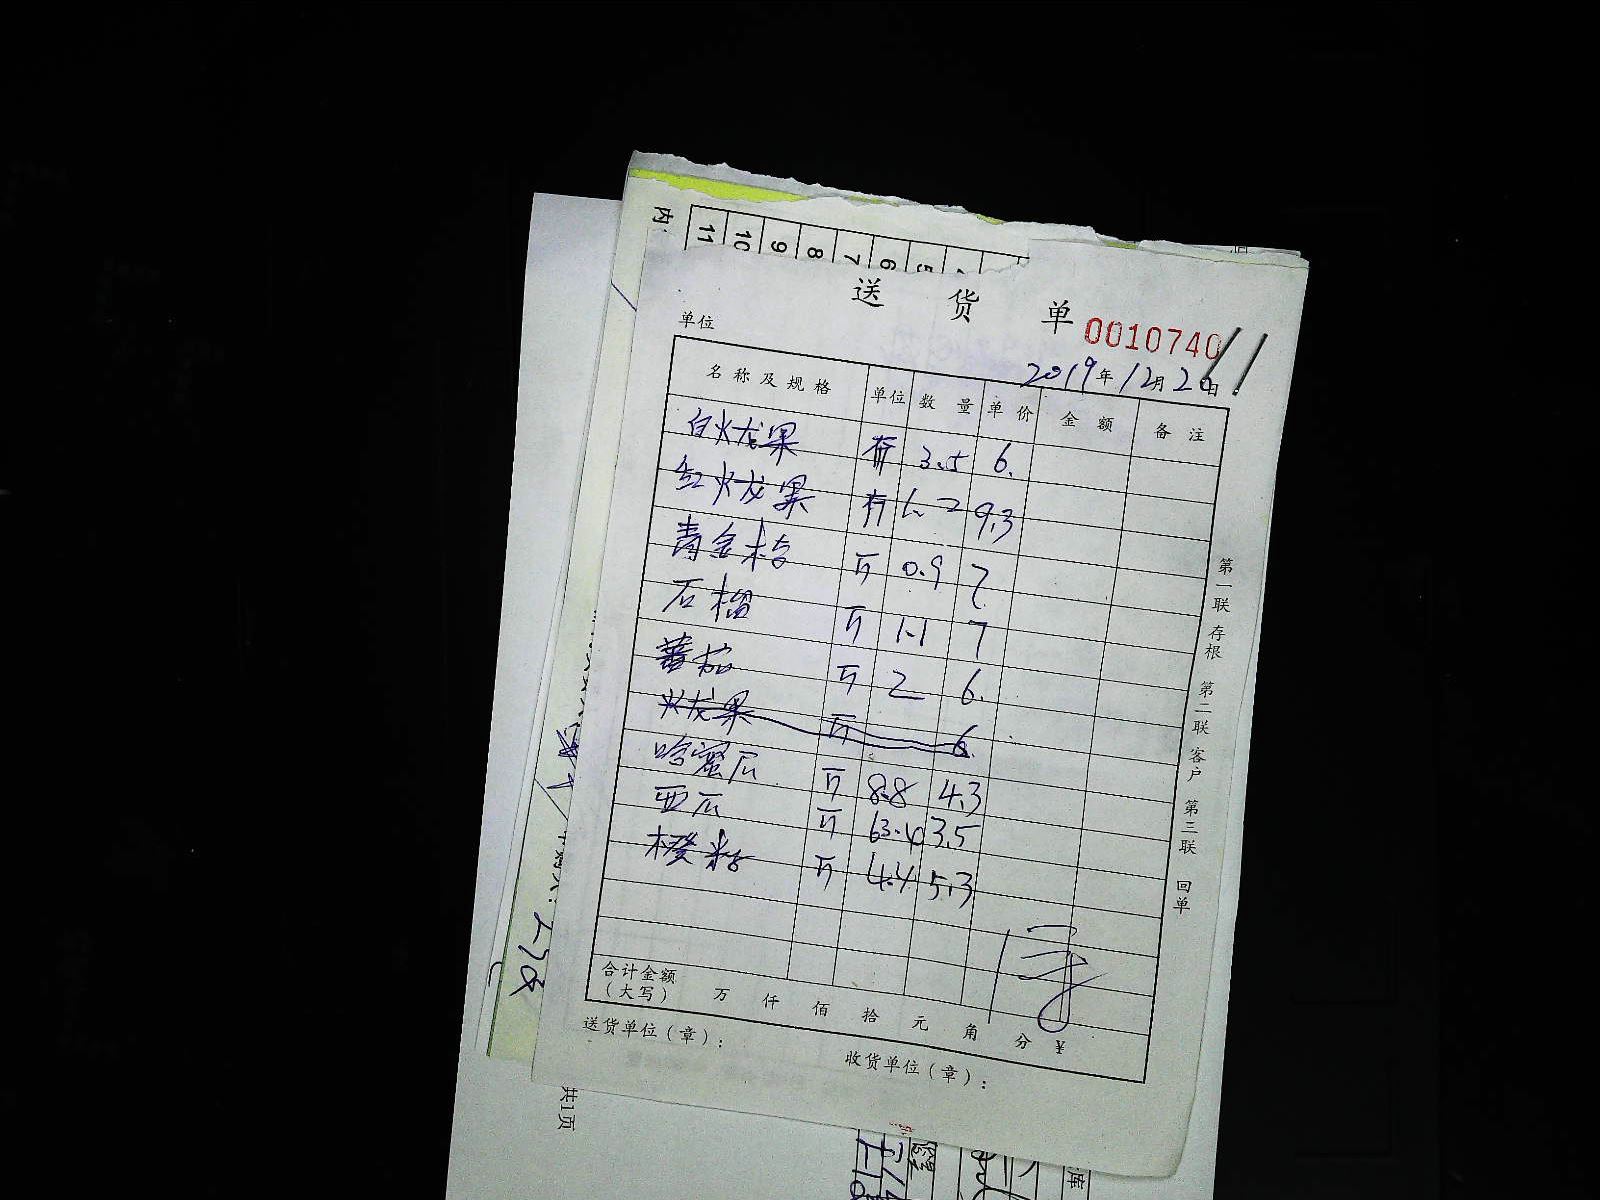 内
11 10 9 8 7 6 5
送 货 单
0010740
单位
2019年12月20日
名称及规格 单位 数量 单价 金额 备注
白火龙果 斤 3.5 6.
红火龙果 斤 1.2 9.3
青金桔 斤 0.9 7
石榴 斤 1.1 7
蕃茄 斤 2 6.
火龙果 斤 6
哈蜜瓜 斤 8.8 4.3
西瓜 斤 63.4 3.5
橙 斤 4.4 5.3
合计金额
（大写） 万 仟 佰 拾 元 角 分 ¥
送货单位（章）：
收货单位（章）：
第一联 存根 第二联 客户 第三联 回单
共1页
库